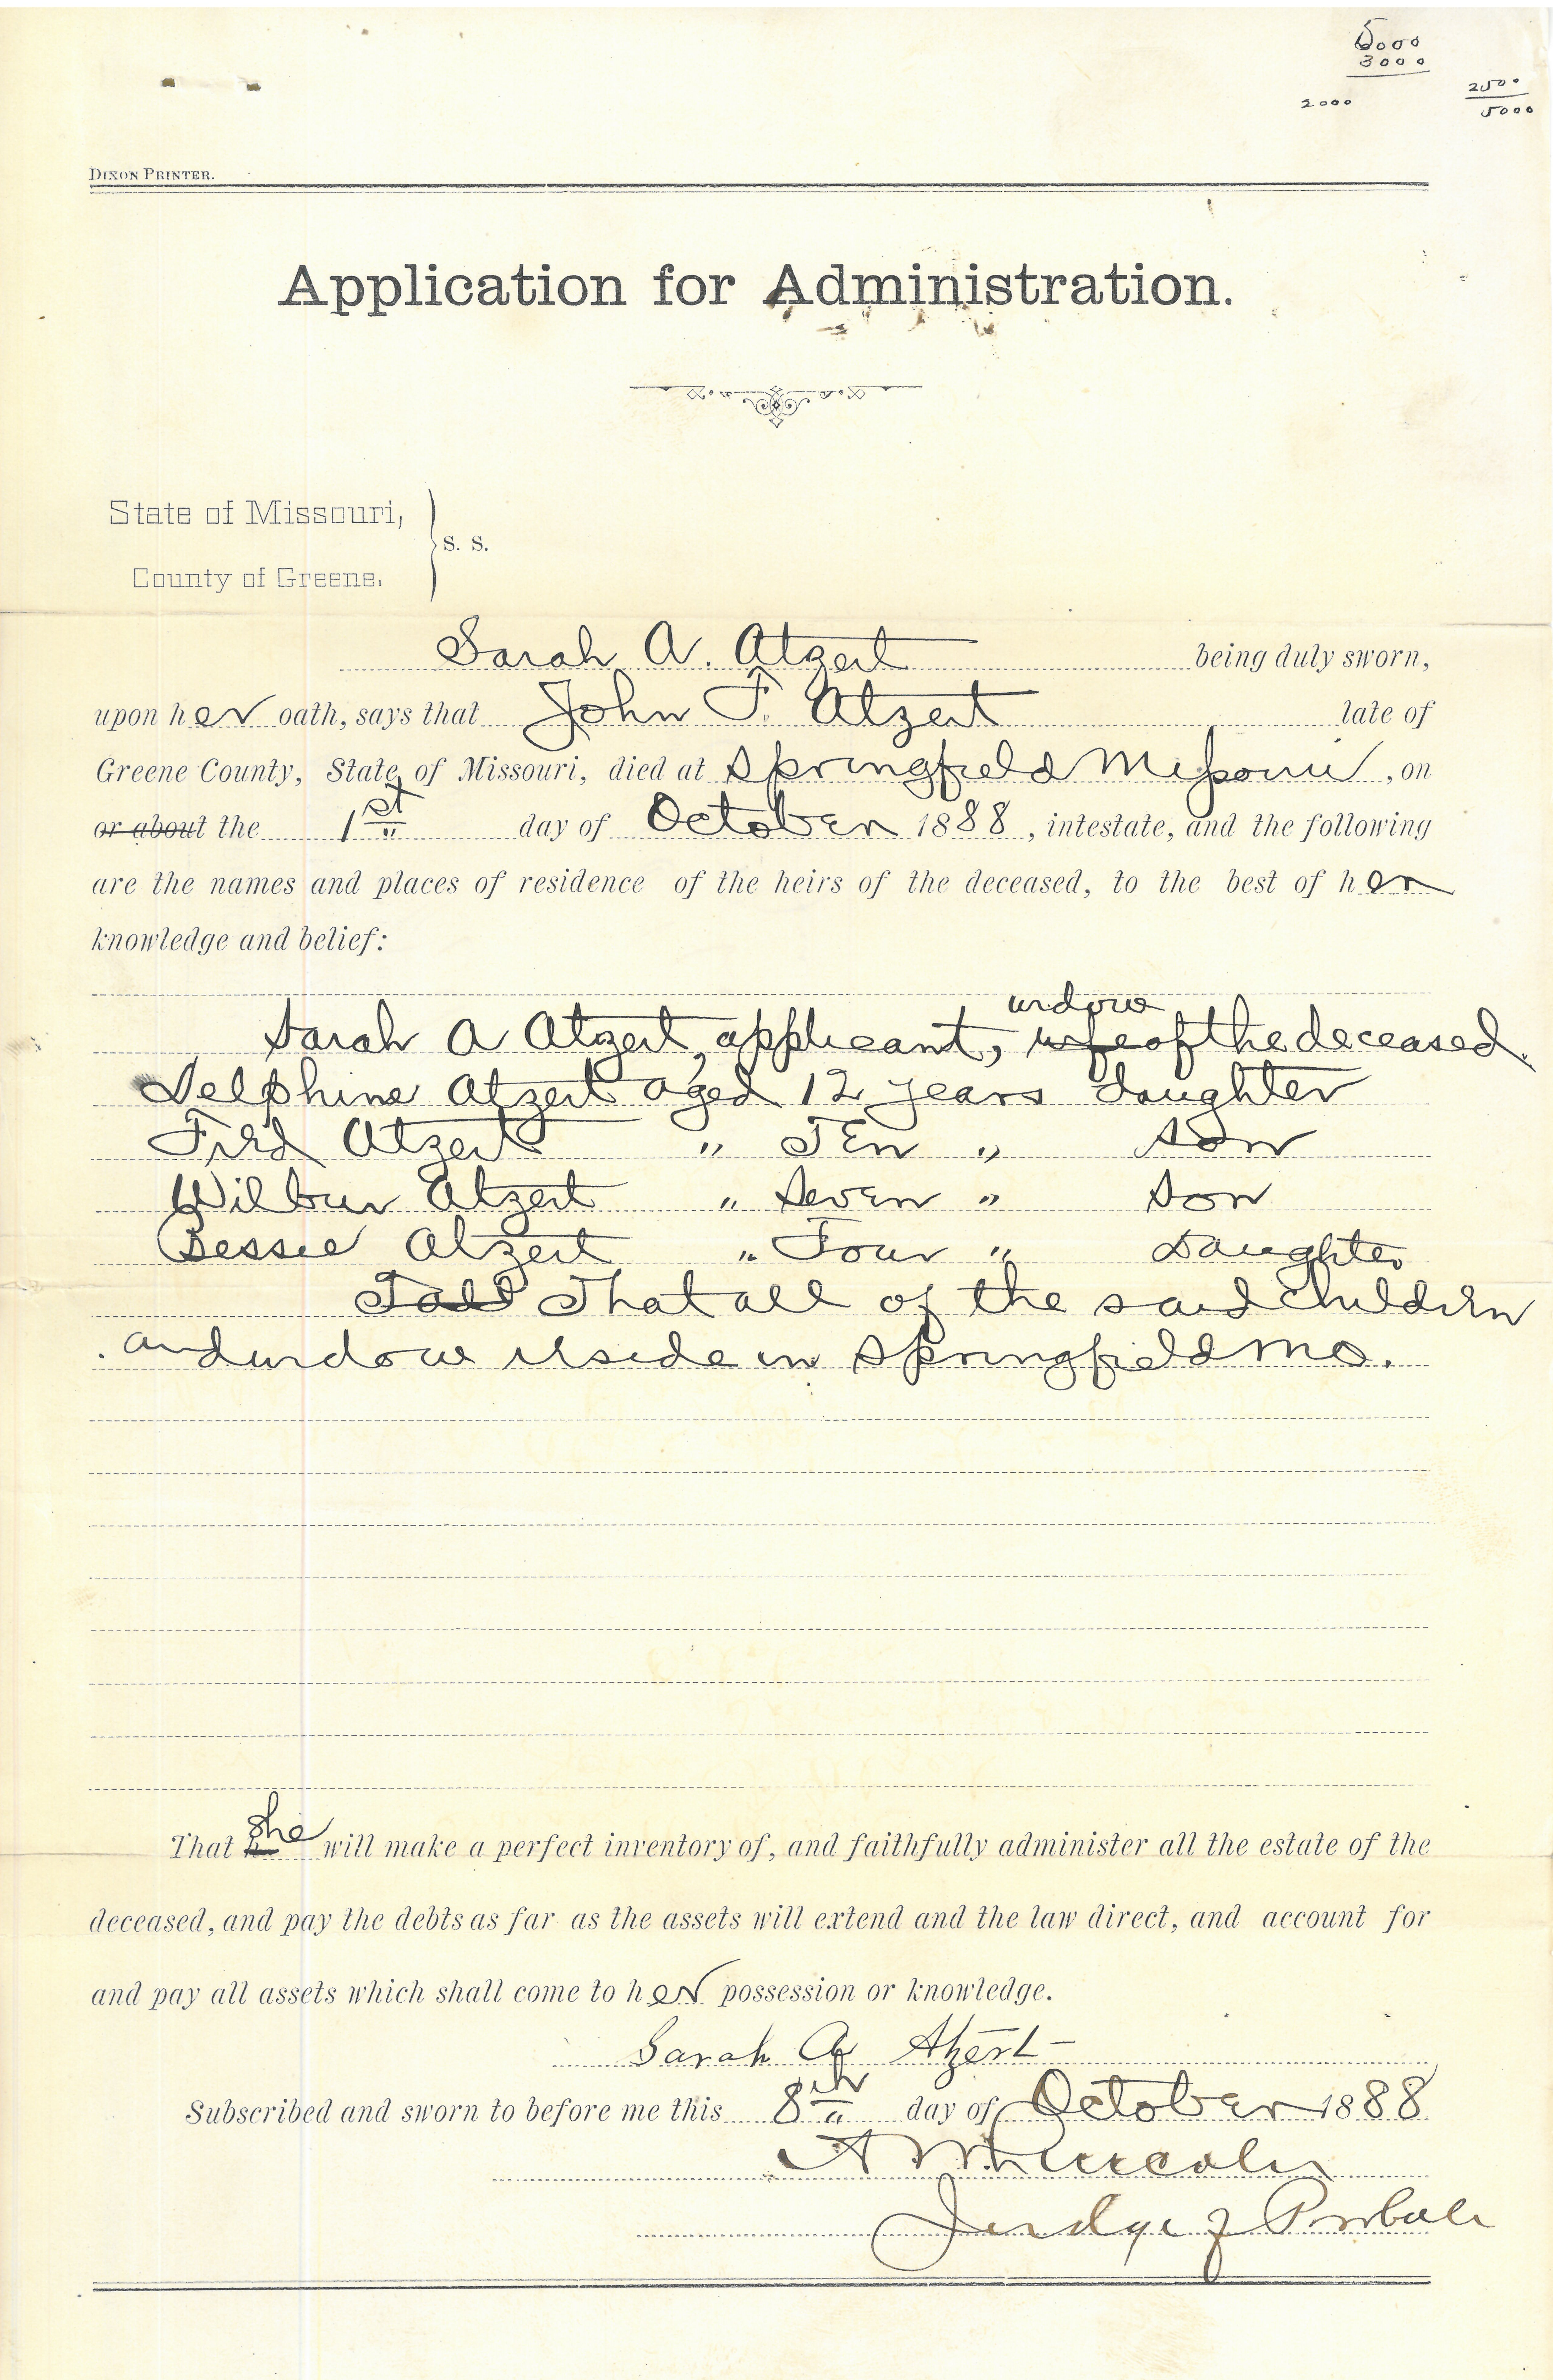 5000
3000
2000
2500
5000
DIXON PRINTER.
Application for Administration.
State of Missouri,
S. S.
County of Greene.
Sarah A. Atzert being duly sworn,
upon her oath, says that John F. Atzert late of
Greene County, State of Missouri, died at Springfield Missouri, on
or about the 1st day of October 1888, intestate, and the following
are the names and places of residence of the heirs of the deceased, to the best of her
knowledge and belief:
widow
Sarah A Atzert, applicant, wife of the deceased.
Delphine Atzert aged 12 years daughter
Fred Atzert " Ten " son
Wilbur Atzert " Seven " Son
Bessie Atzert " Four " Daughter
That all of the said children
and widow reside in Springfield Mo.
That she will make a perfect inventory of, and faithfully administer all the estate of the
deceased, and pay the debts as far as the assets will extend and the law direct, and account for
and pay all assets which shall come to her possession or knowledge.
Sarah A Atzert
Subscribed and sworn to before me this 8th day of October 1888
A W Lincoln
Judge of Probate